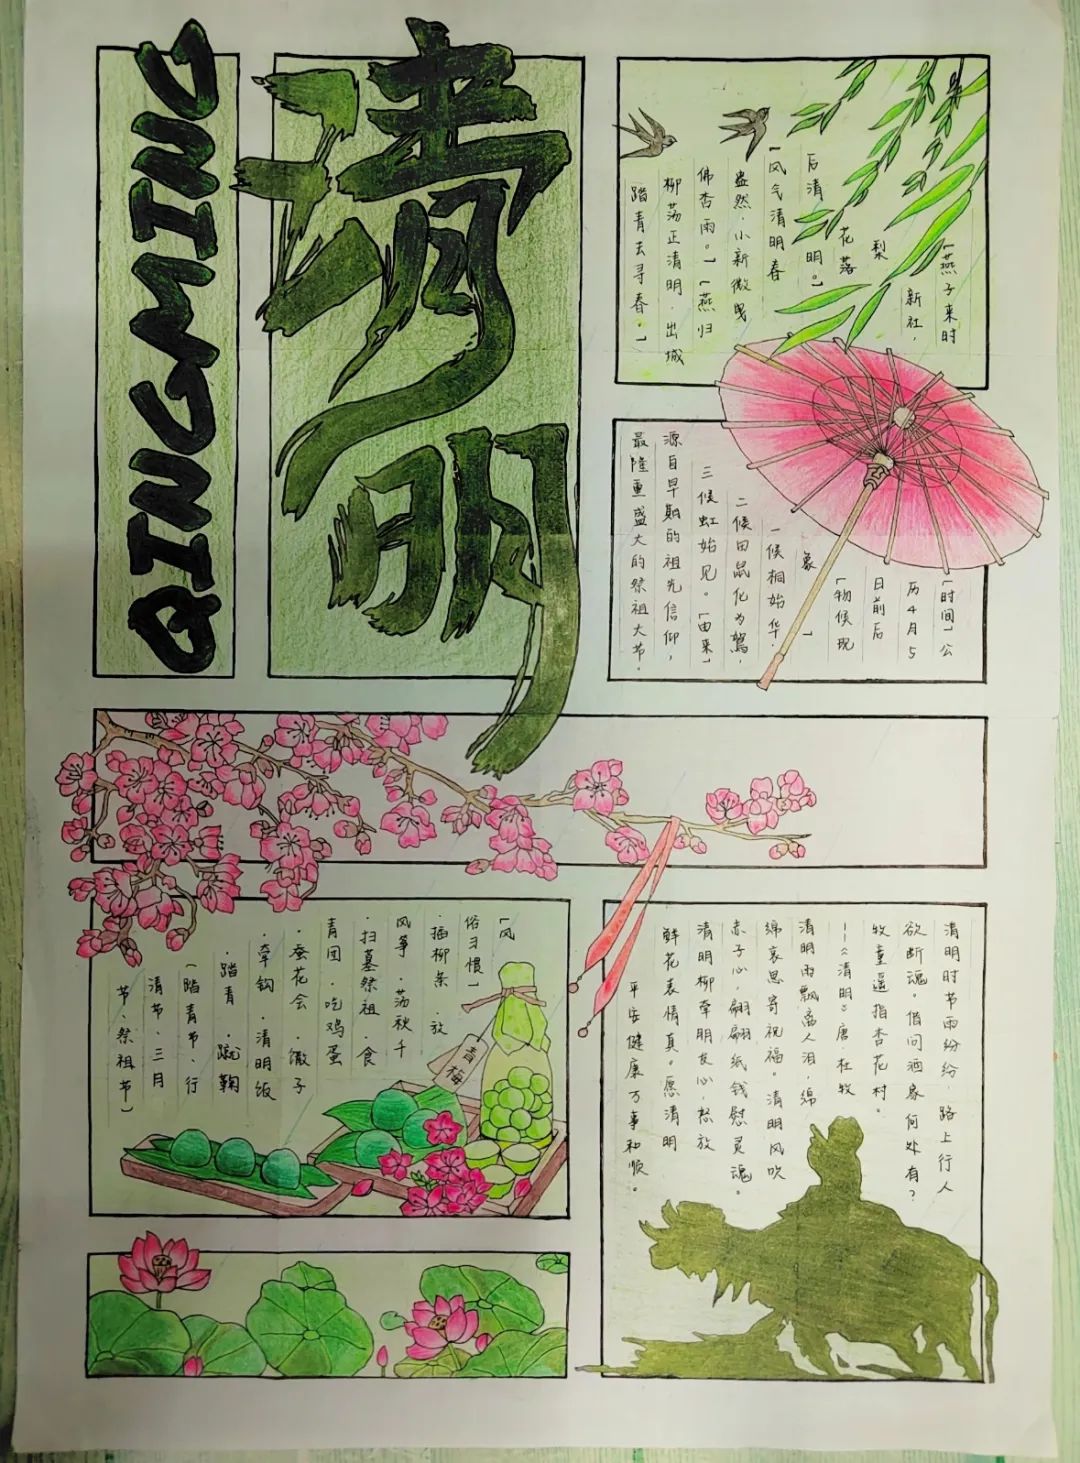 QINGMING
清明
[燕子来时
新社,
梨
花落
后清明。]
[风气清明春
盎然·小新微曳
佛杏雨。][燕归
柳荡正清明·出城
踏青去寻春。]
[时间]公
历4月5
日前后
[物候现
象]
一候桐始华·
二候田鼠化为鴽,
三候虹始见。[由来]
源自早期的祖先信仰,
最隆重盛大的祭祖大节。
[风
俗习惯]
·插柳条·放
风筝·荡秋千
·扫墓祭祖·食
青团·吃鸡蛋
·蚕花会·馓子
·牵钩·清明饭
·踏青·蹴鞠
(踏青节·行
清节·三月
节·祭祖节)
青梅
清明时节雨纷纷 路上行人
欲断魂。借问酒家何处有?
牧童遥指杏花村。
——《清明》唐·杜牧
清明雨飘离人泪·绵
绵哀思寄祝福。清明风吹
赤子心·翩翩纸钱慰灵魂。
清明柳牵朋友心·怒放
鲜花表情真。愿清明
平安健康万事和顺。